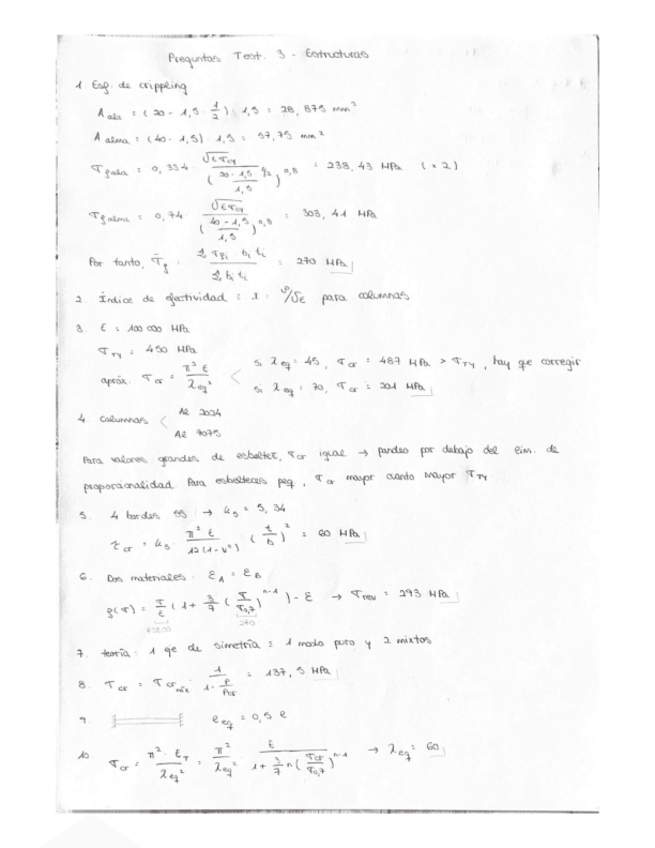 Preguntas Test. 3 - Estructuras
1. Esf. de crippling
A ala = (20 - 1,5 · 1/2) · 1,5 = 28,875 mm²
A alma = (40 - 1,5) · 1,5 = 57,75 mm²
σf ala = 0,334 · √(E σcy) / ((20 - 1,5 · 1/2) / 1,5)^0,8 = 238,43 MPa (x 2)
σf alma = 0,74 · √(E σcy) / ((40 - 1,5) / 1,5)^0,8 = 303,41 MPa
Por tanto, σ̄f = Σ σfi bi ti / Σ bi ti = 270 MPa
2. Índice de efectividad = I = ρ/√E para columnas
3. E = 100 000 MPa
σTy = 450 MPa
apróx. σcr = π² E / λeq² < si λeq = 45, σcr = 487 MPa > σTy, hay que corregir
si λeq = 70, σcr = 201 MPa
4. Columnas < Al 2024
Al 7075
Para valores grandes de esbeltez, σcr igual → pandeo por debajo del lím. de
proporcionalidad. Para esbelteces peq, σcr mayor cuanto mayor σTy
5. 4 bordes ss → ks = 5,34
τcr = ks · π² E / 12(1-ν²) · (t/b)² = 60 MPa
6. Dos materiales εA = εB
g(σ) = σ/E (1 + 3/7 (σ/σ0,7)^n-1) - ε → σnew = 293 MPa
270
7. teoría: 1 eje de simetría = 1 modo puro y 2 mixtos
8. σcr = σcr mix · 1 / (1 - P/Pcr) = 137,5 MPa
9. leq = 0,5 l
10 σcr = π² · ET / λeq² = π² / λeq² · E / (1 + 3/7 n (σcr/σ0,7)^n-1) → λeq = 60